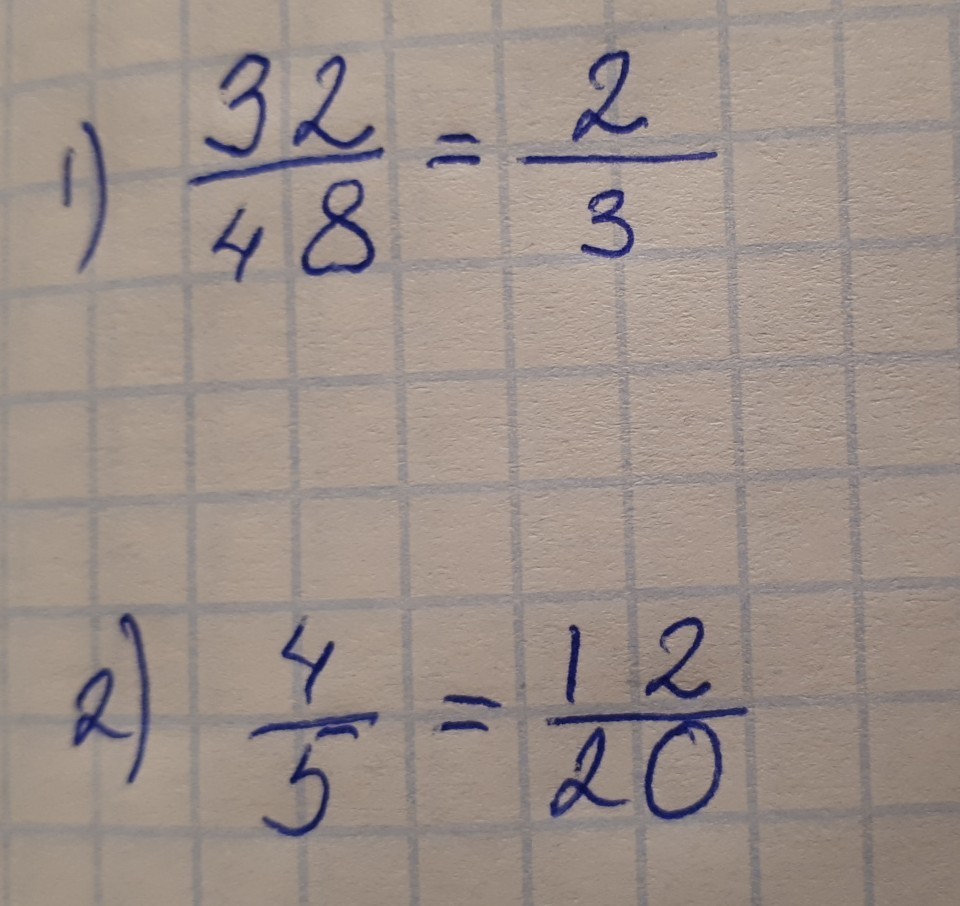 1) 32/48 = 2/3
2) 4/5 = 12/20